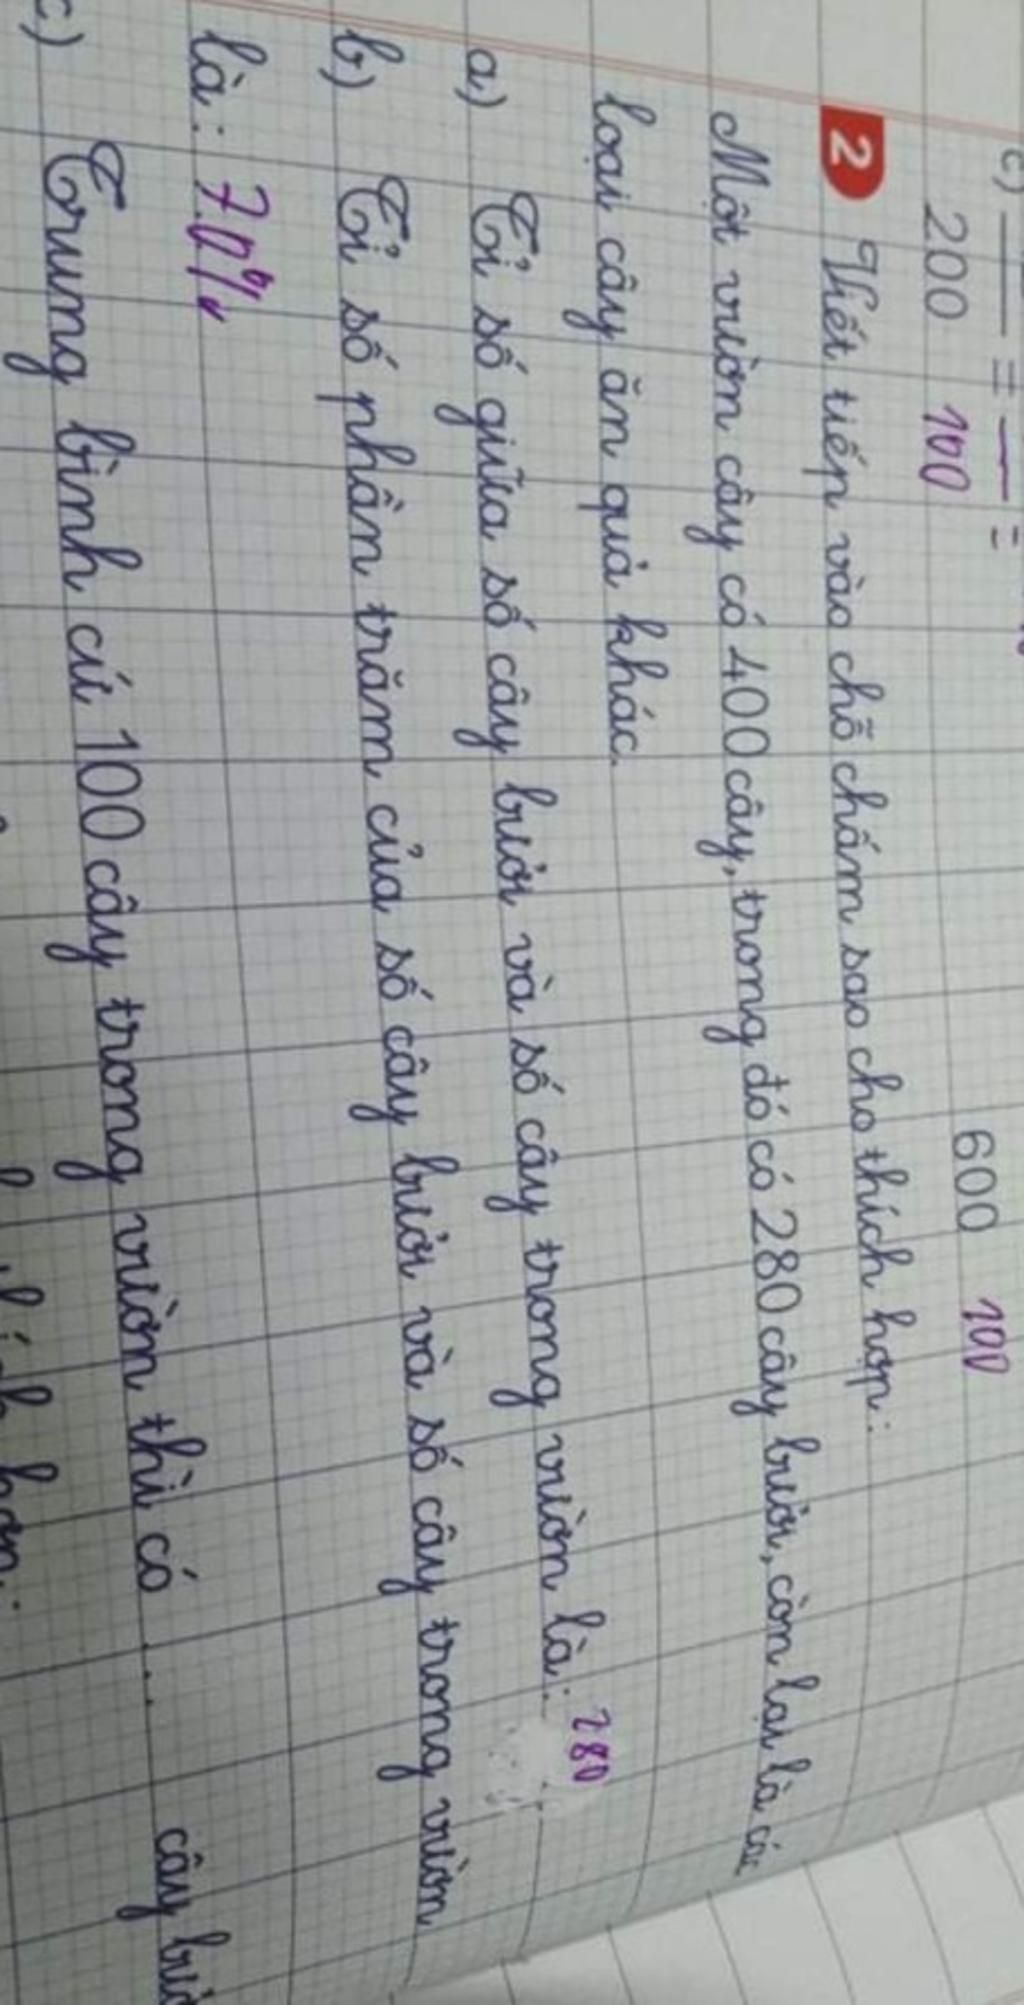 c) — = — =
200 100 600 100
2 Viết tiếp vào chỗ chấm sao cho thích hợp:
Một vườn cây có 400 cây, trong đó có 280 cây bưởi, còn lại là các
loại cây ăn quả khác.
a) Tỉ số giữa số cây bưởi và số cây trong vườn là: 280
b) Tỉ số phần trăm của số cây bưởi và số cây trong vườn
là: 70%
c) Trung bình cứ 100 cây trong vườn thì có ... cây